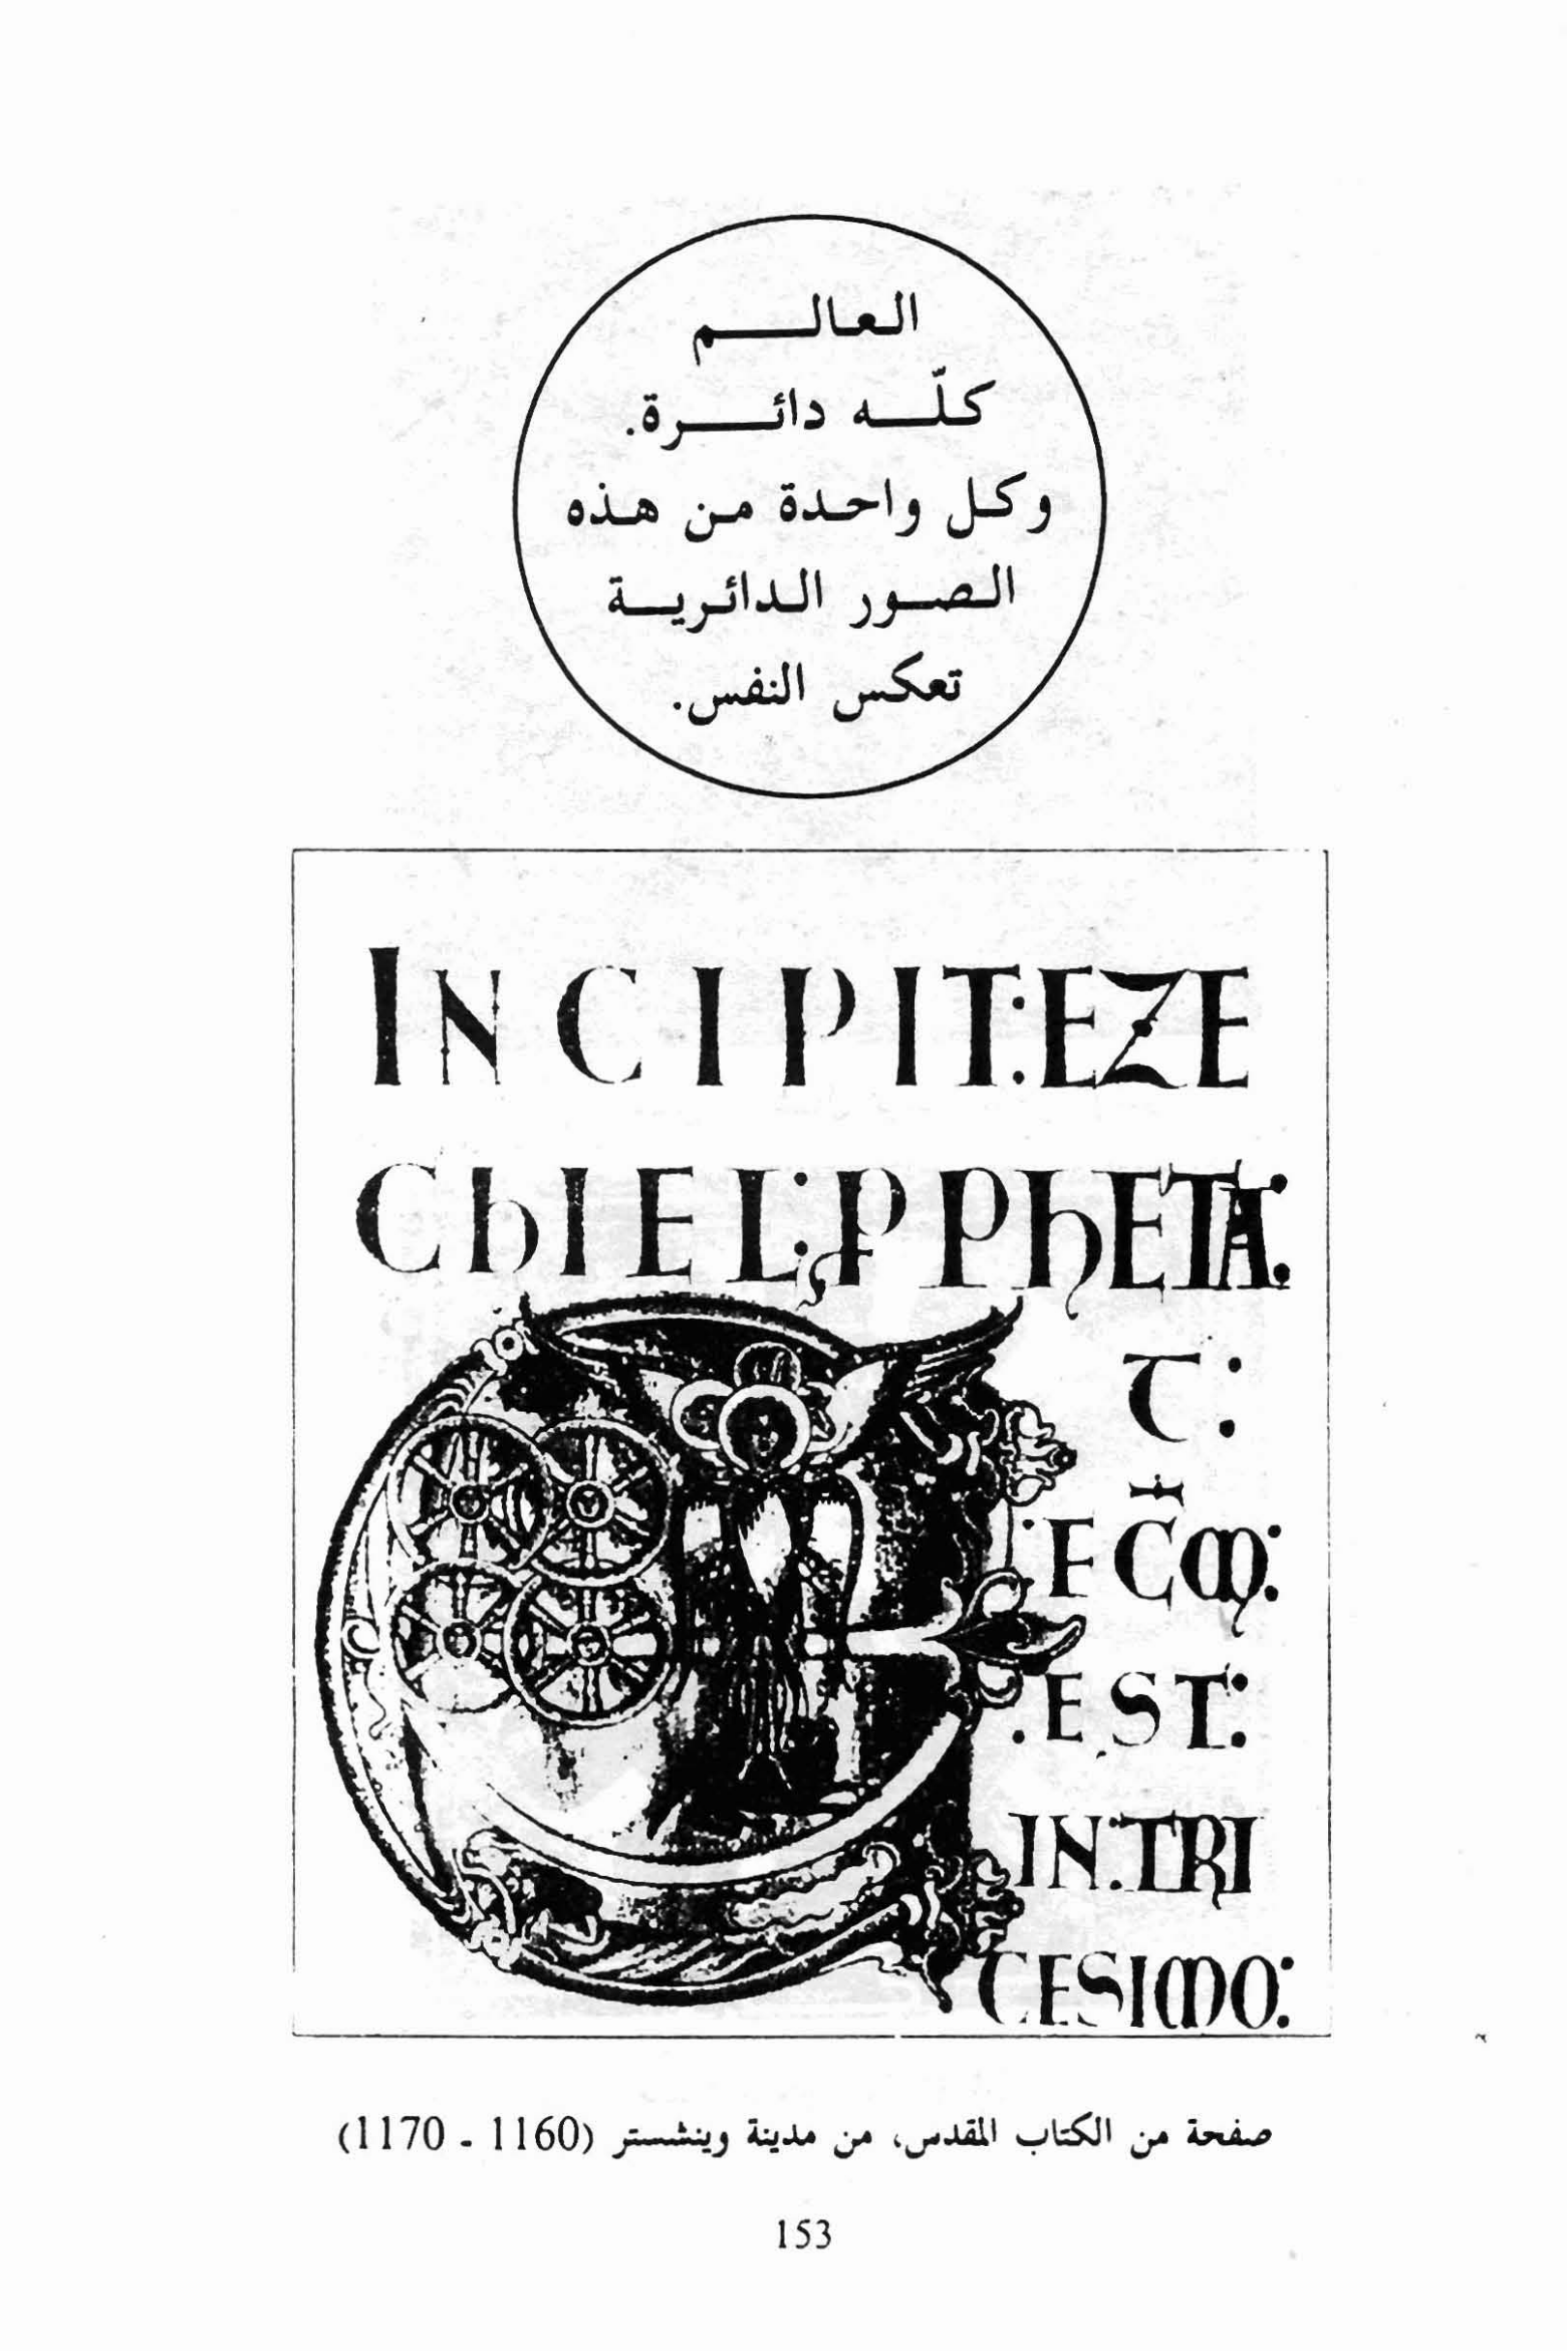 العالم
كلّه دائرة.
وكل واحدة من هذه
الصور الدائرية
تعكس النفس.
INCIPIT:EZE
ChIEL:PPhETA:
T:
:FCM:
.EST:
IN:TRI
CESIMO:
صفحة من الكتاب المقدس، من مدينة وينشستر (1160 - 1170)
153